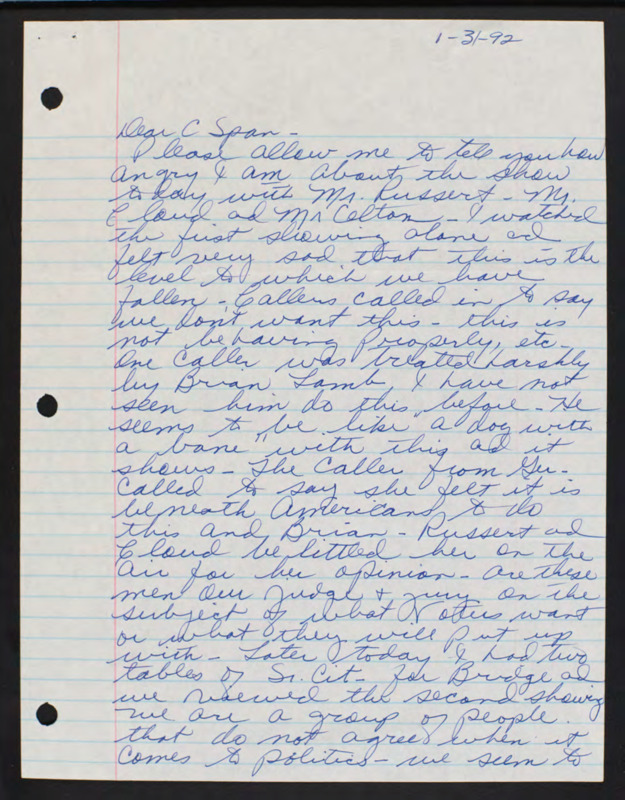 1-31-92
Dear C Span-
Please allow me to tell you how
angry I am about the show
today with Mr. Russert - Mr.
Cloud ad Mr Colton - I watched
the first showing alone ad
felt very sad that this is the
level to which we have
fallen - Callers called in to say
we don't want this - this is
not behaving properly, etc-
One caller was treated harshly
by Brian Lamb, I have not
seen him do this before - He
seems to be like "a dog with
a bone" with this ad it
shows - The Caller from
called to say she felt it is
beneath Americans to do
this and Brian - Russert ad
Cloud belittled her on the
air for her opinion - are these
men our judge + jury on the
subject of what Voters want
or what they will put up
with - Later today I had two
tables of Sr. Cit- for Bridge ad
we viewed the second showing
we are a group of people
that do not agree when it
comes to politics - we seem to